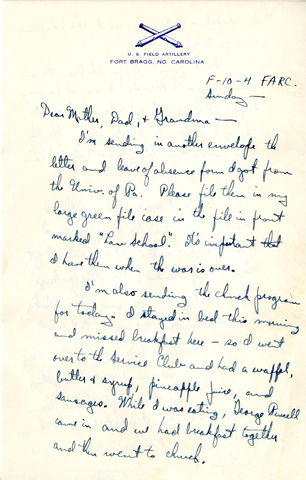 U. S. FIELD ARTILLERY
FORT BRAGG, NO. CAROLINA
F-10-4 FARC.
Sunday —
Dear Mother, Dad, & Grandma —
I'm sending in another envelope the
letter and leave of absence form I got from
the Univ. of Pa. Please file them in my
large green file case in the file in front
marked "Law School". It's important that
I have them when the war is over.
I'm also sending the church program
for today. I stayed in bed this morning
and missed breakfast here - so I went
over to the Service Club and had a waffle,
butter & syrup, pineapple juice, and
sausages. While I was eating, George Purcell
came in and we had breakfast together
and then went to church.